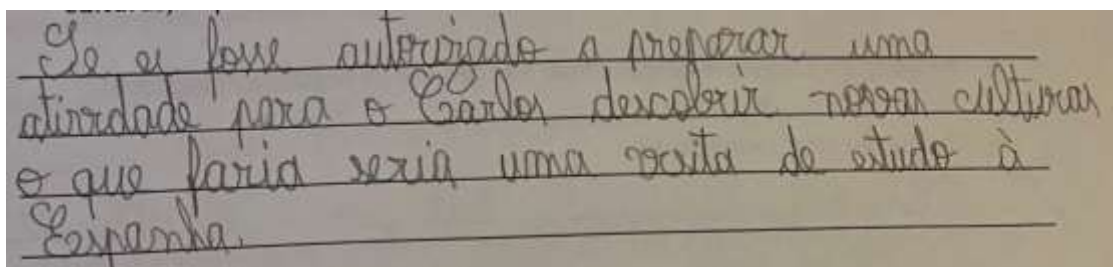 Se eu fosse autorizado a preparar uma
atividade para o Carlos descobrir novas culturas
o que faria seria uma visita de estudo à
Espanha.